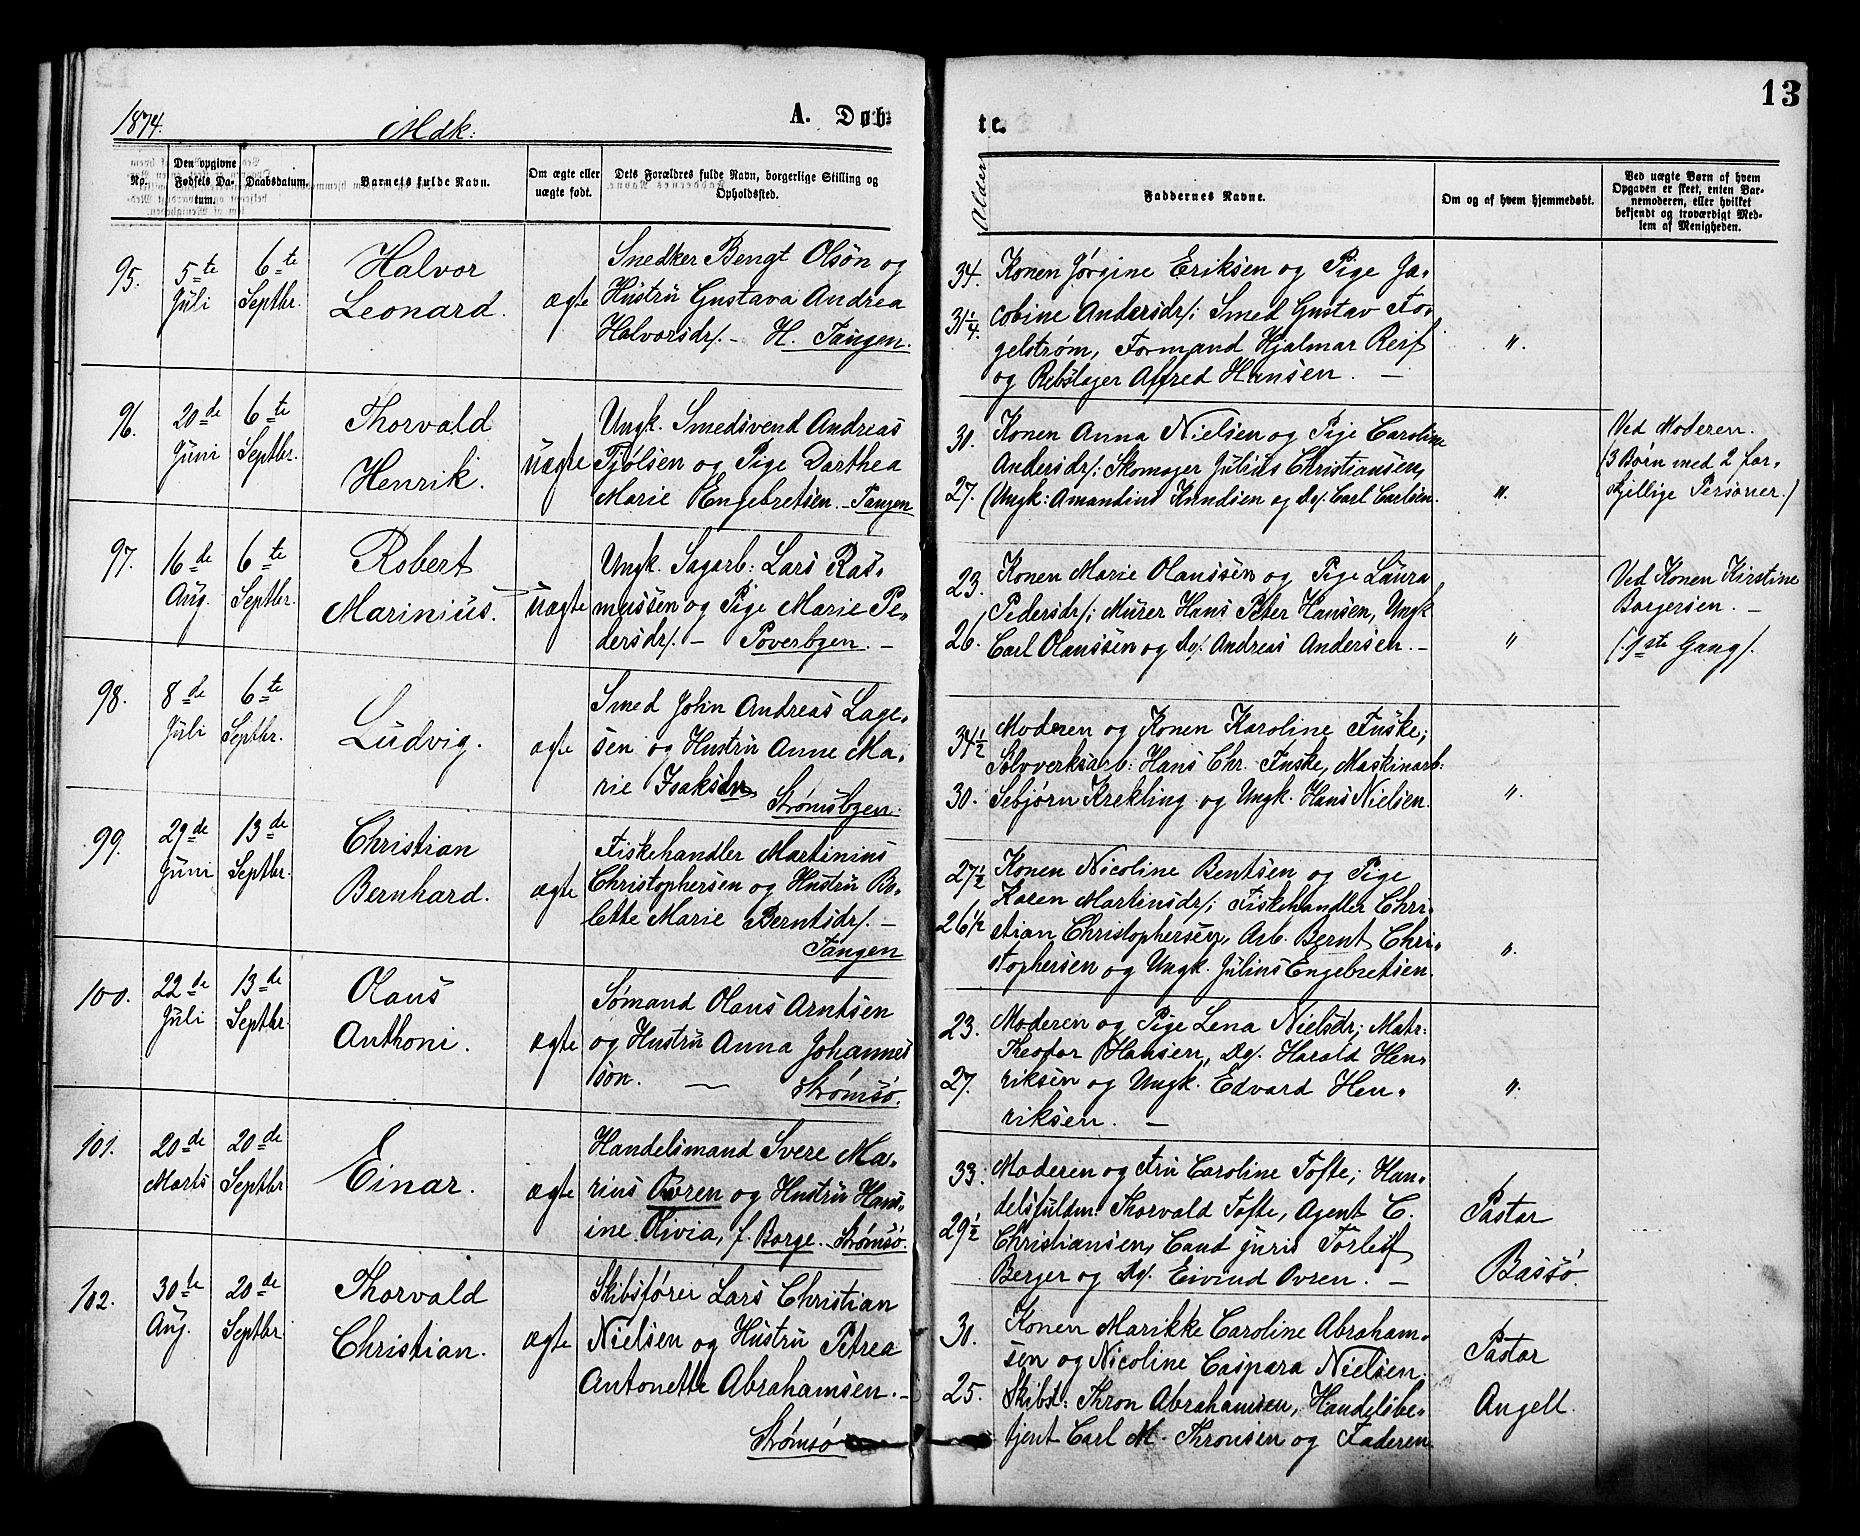 13
1874.
Mdk:
A. Døb-
te.
No.
Den opgivne
Fødsels Da-
tum.
Daabsdatum.
Barnets fulde Navn.
Om ægte eller
uægte født.
Dets Forældres fulde Navn, borgerlige Stilling og
Opholdssted.
Alder
Faddernes Navne.
Om og af hvem hjemmedøbt.
Ved uægte Børn af hvem
Opgaven er skeet, enten Bar-
nemoderen, eller hvilket
bekjendt og troværdigt Med-
lem af Menigheden.
95.
5te
Juli
6te
Septbr.
Halvor
Leonard.
ægte
Snedker Bengt Olsøn og
Hustru Gustava Andrea
Halvorsdr/. - H. Tangen.
34.
31 1/4.
Konen Jørgine Eriksen og Pige Ja-
cobine Andersdr/; Smed Gustav Fo-
gelstrøm, Formand Hjalmar Reif
og Rebslager Alfred Hansen. —
"
96.
20de
Juni
6te
Septbr.
Thorvald
Henrik.
uægte
Ungk. Smedsvend Andreas
Fjølsen og Pige Dorthea
Marie Engebretsen. - Tangen
30.
27.
Konen Anna Nielsen og Pige Caroline
Andersdr/; Skomager Julius Christiansen,
Ungk: Amandius Knudsen og Do/. Carl Carlsen.
"
Ved Moderen.
(3 Børn med 2 for-
skjellige Personer.)
97.
16de
Aug.
6te
Septbr.
Robert
Marinius.
uægte
Ungk. Sagarb: Lars Ras-
mussen og Pige Marie Pe-
dersdr/. - Toverbgen. -
23.
26.
Konen Marie Olanssen og Pige Laura
Pedersdr/; Murer Hans Peter Hansen, Ungk
Carl Olaussen og Do/. Andreas Andersen. -
"
Ved Konen Kirstine
Borgersen. -
(1ste Gang).
98.
8de
Juli
6te
Septbr.
Ludvig.
ægte
Smed John Andreas Lage-
sen og Hustru Anne Ma-
rie Isaksen
Strømsbgen.
34 1/2
30.
Moderen og Konen Karoline Fuske;
Sølvverksarb: Hans Chr. Fuske, Maskinarb:
Sebjørn Krekling og Ungk. Hans Nielsen.
"
99.
29de
Juni
13de
Septbr.
Christian
Bernhard.
ægte
Fiskehandler Martinius
Christophersen og Hustru Bo-
lette Marie Berntsdr/. -
Tangen
27 1/2
26 1/2
Konen Nicoline Bentsen og Pige
Karen Martinsdr/; Fiskehandler Chri-
stian Christophersen, Arb. Bernt Chri-
stophersen og Ungk. Julius Engebretsen.
"
100.
22de
Juli
13de
Septbr.
Olaus
Anthoni.
ægte
Sømand Olaus Arntsen
og Hustru Anna Johannes
son. — Strømsø.
23.
27.
Moderen og Pige Lena Nielsdr; Matr:
Theodor Hansen, Do/. Harald Hen-
riksen og Ungk. Edvard Hen-
riksen. —
"
101.
20de
Marts
20de
Septbr
Einar.
ægte
Handelsmand Svere Ma-
rius Ovren og Hustru Hans-
ine Olivia, f. Borge. Strømsø.
33.
29 1/2
Moderen og Fru Caroline Tofte; Han-
delsfuldm: Thorvald Tofte, Agent C.
Christiansen, Cand juris Torleif
Berger og Do/. Eivind Ovren. —
Pastor
Bassø.
102.
30te
Aug.
20de
Septbr
Thorvald
Christian.
ægte
Skibsfører Lars Christian
Nielsen og Hustru Petrea
Antonette Abrahamsen. -
Strømsø
30.
25.
Konen Marikke Caroline Abraham-
sen og Nicoline Caspara Nielsen.
Skibst: Thron Abrahamsen, Handelsbe-
tjent Carl M. Thronsen og Faderen.
Pastor
Angell.